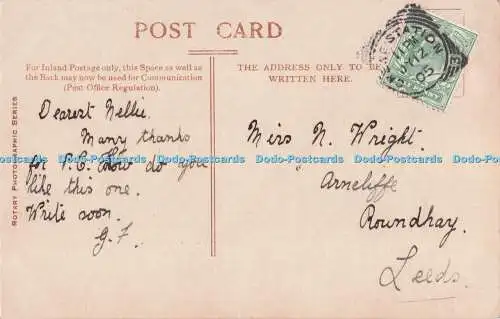 POST CARD
For Inland Postage only, this Space as well as
the Back may now be used for Communication
(Post Office Regulation).
THE ADDRESS ONLY TO BE
WRITTEN HERE.
STATION
ROTARY PHOTOGRAPHIC SERIES
Dearest Nellie.
Many thanks
for P.C. How do you
like this one.
Write soon.
G.F.
Miss N. Wright.
Arncliffe
Roundhay.
Leeds.
Dodo-Postcards Dodo-Postcards Dodo-Postcards Dodo-Postcards Dodo-Postcards Dodo-Postcards